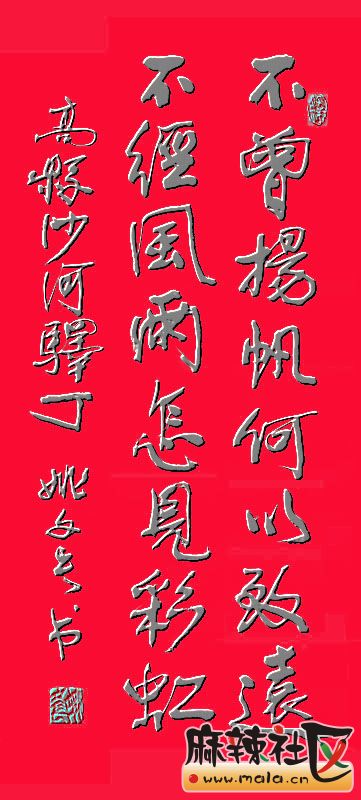 不曾揚帆何以致遠
不經風雨怎見彩虹
高縣沙河驛丁
姚文兵书
麻辣社区
www.mala.cn